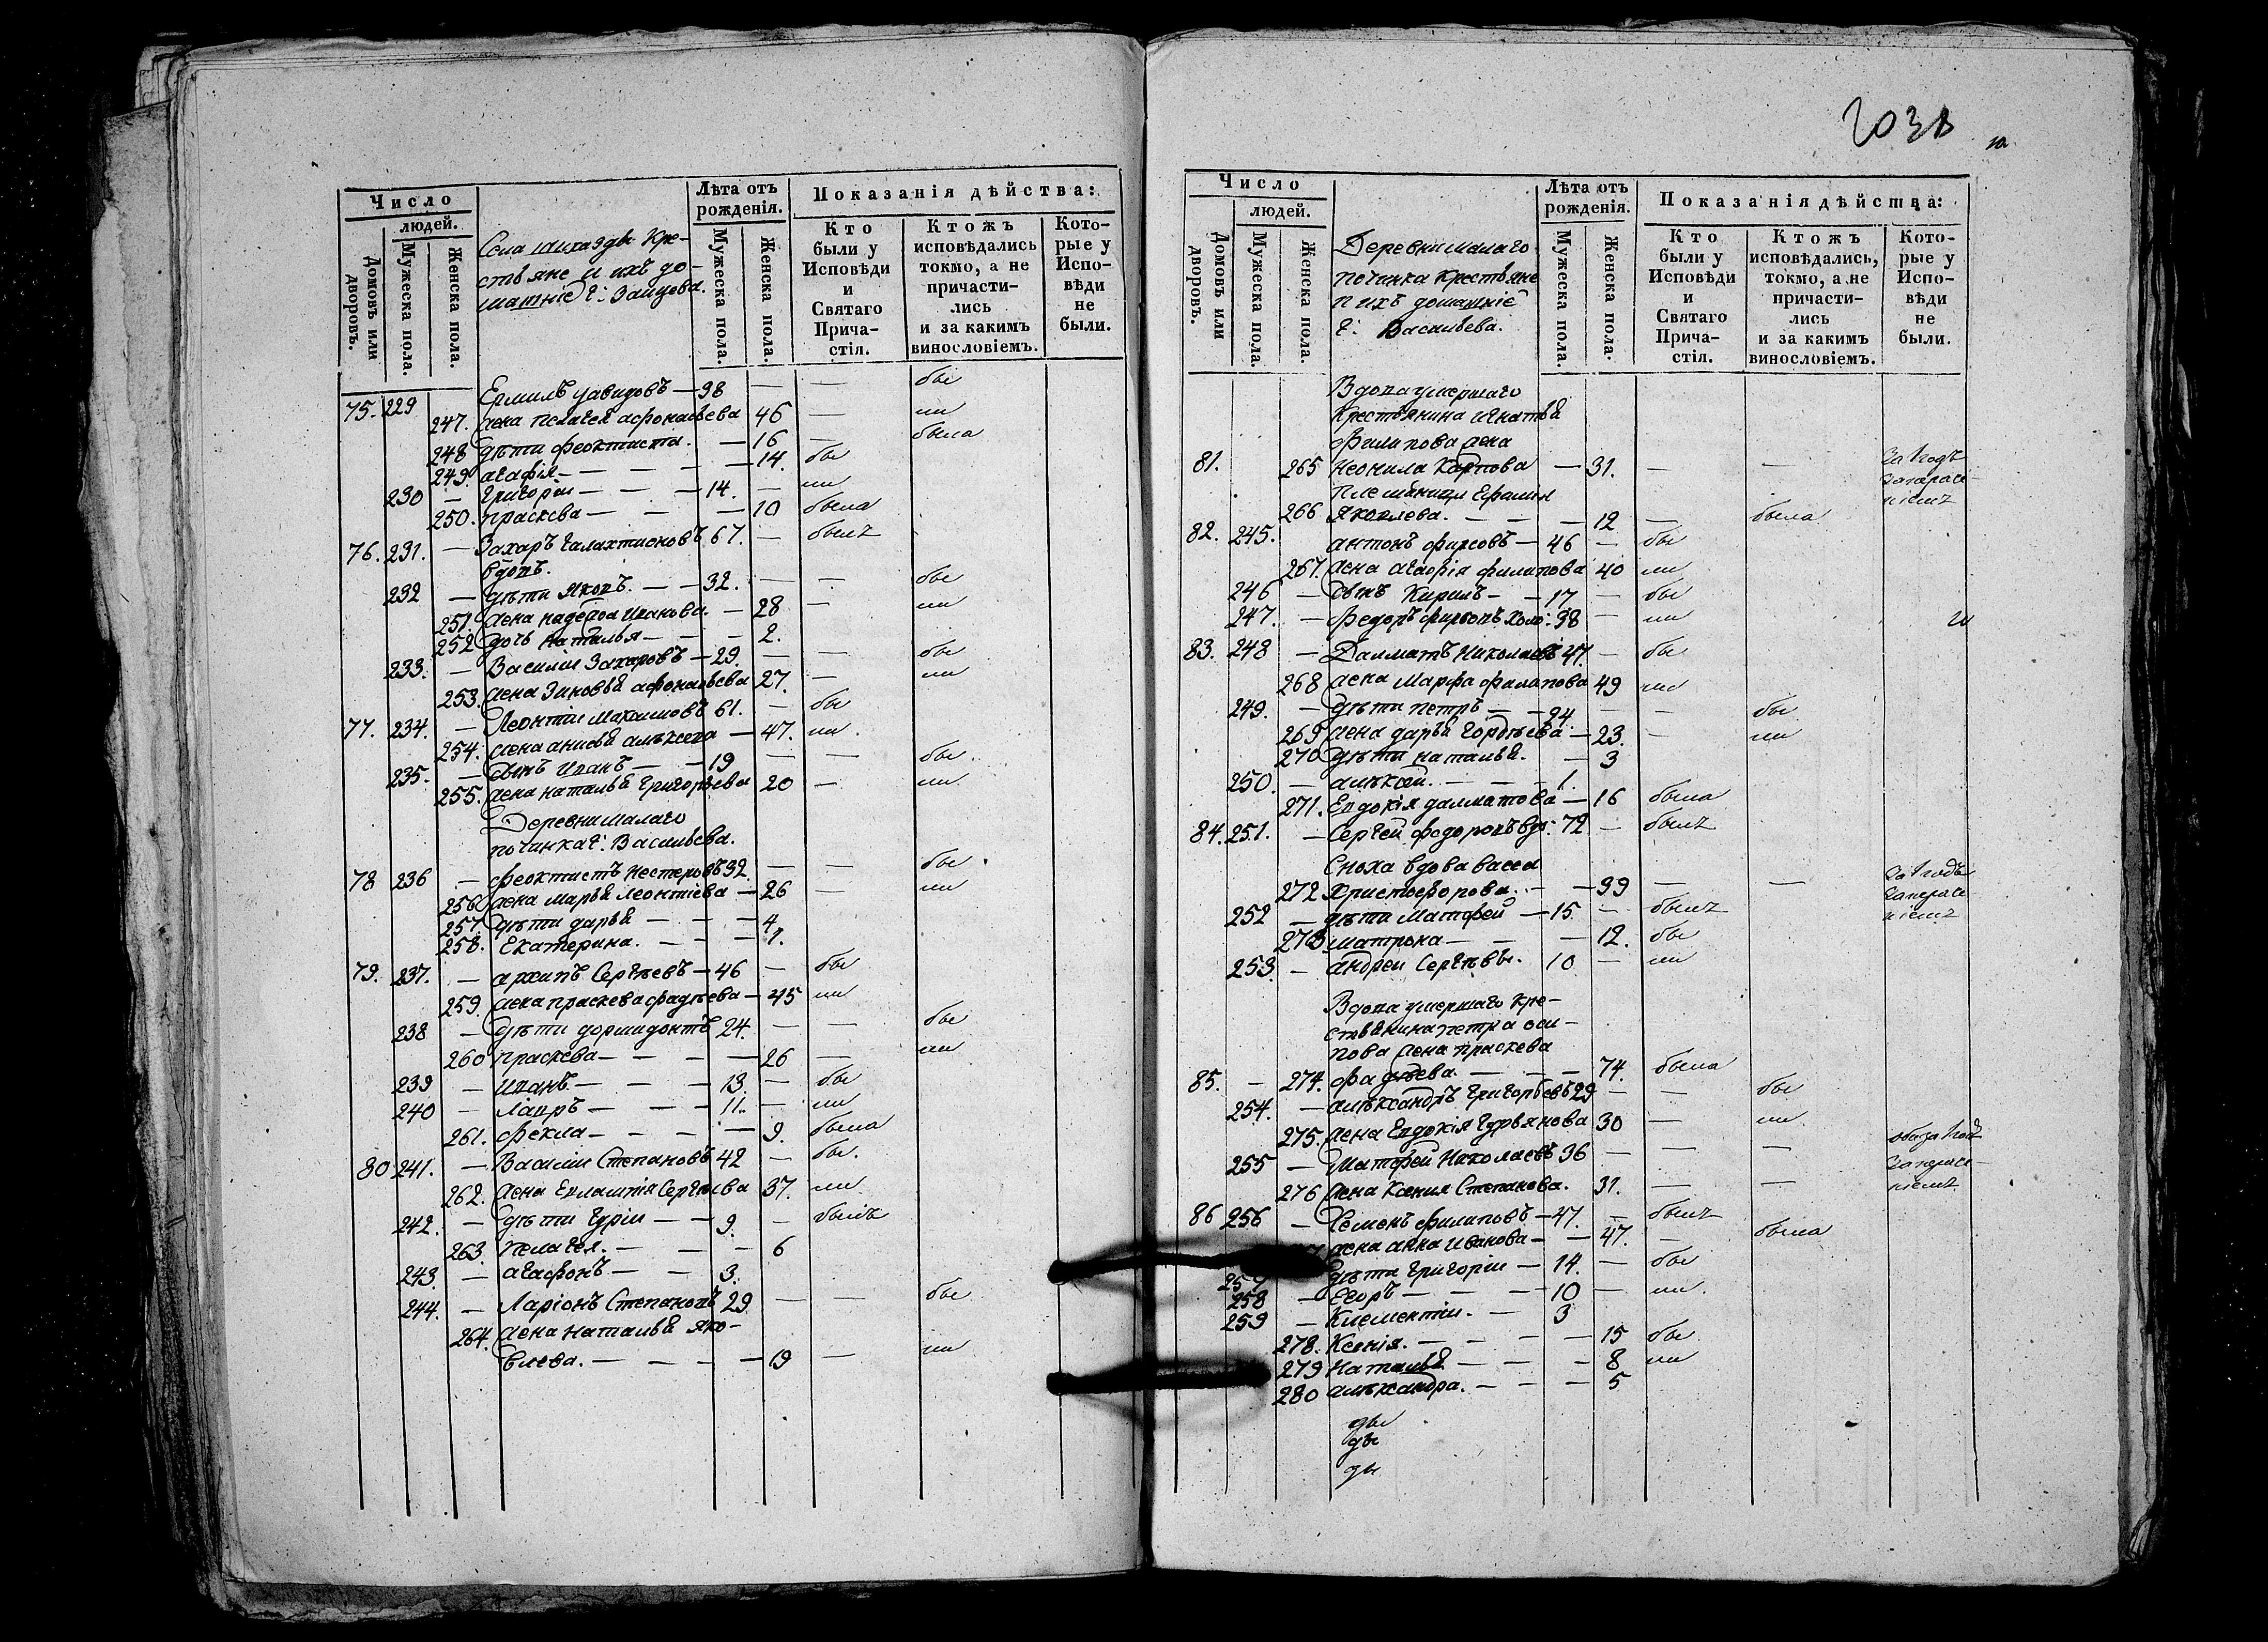 Число
людей.
Домовъ или дворовъ.
Мужеска пола.
Женска пола.
Села Кре-
стьяне и ихъ до-
машніе Г: Заицова.
Лѣта отъ рожденія.
Мужеска пола.
Женска пола.
Показанія дѣйства:
Кто были у Исповѣди и Святаго Прича- стія.
Ктожъ исповѣдались токмо, а не причасти- лись и за какимъ винословіемъ.
Кото- рые у Испо- вѣди не были.
75. 229 Ермилъ Давидовъ — 38 — — бы
247. жена пелагея афонасьева 46 — ли
248 дѣти феоктиста. — 16 — была
249. агафія — — — — 14. бы
230 — григорій — — — 14. — ли
250. праскева — — — 10 была
76. 231. — Захаръ Галахтионовъ 67. — былъ
вдовъ.
232 — дѣти Яковъ. — — 32. — — бы
251. жена надежда Иванова. — 28 — ли
252 дочь наталья — — — 2.
233. — Василіи Захаровъ — 29. — — бы
253. жена Зиновья афонасьева 27. — ли
77. 234. — Леонтіи Максимовъ 61. — бы
254. жена анисья алѣксева — 47. ли
235. — сынъ Иванъ — — 19 — — бы
255. жена наталья григорьева 20 — ли
Деревни малаго
починка Г: Васильева.
78 236 — феоктистъ Нестеровъ 32. — — бы
256 жена марья леонтіева — 26 — ли
257. дѣти дарья — — — 4.
258. Екатерина. — — — 1.
79. 237. — архипъ Сергѣевъ — 46 — бы
259. жена праскева фадѣева — 45 ли
238 — дѣти дормидонтъ 24. — — бы
260 праскева — — — — 26 — ли
239 — Иванъ — — — 13. — бы
240 — Лавръ — — — 11. — ли
261. фекла — — — — 9. была
80 241. — Василіи Степановъ 42 — бы.
262. жена Евлампія Сергѣева 37. ли
242. — дѣти Гуріи — — 9. — былъ
263. пелагея. — — — 6
243 — агафонъ — — 3.
244. — Ларіонъ Степановъ 29 — — бы
264. жена наталья яко-
влева. — — — — 19 — ли
203
Число
людей.
Домовъ или дворовъ.
Мужеска пола.
Женска пола.
Деревни малаго
починка крестьяне
и ихъ домашніе
Г: Васильева.
Лѣта отъ рожденія.
Мужеска пола.
Женска пола.
Показанія дѣйства:
Кто были у Исповѣди и Святаго Прича- стія.
Ктожъ исповѣдались, токмо, а не причасти- лись и за какимъ винословіемъ.
Кото- рые у Испо- вѣди не были.
Вдова умершаго
крестьянина игнатья
филипова жена
81. 265 неонила Карпова — 31. — —
племяница
266 Яковлева. — — — 12 — была
82. 245. антонъ фирсовъ — 46 — бы
267. жена агафія филипова 40 ли
246 — сынъ Кирилъ — — 17 — бы
247. — федоръ фирсовъ холо: 38 — ли
83. 248 — Далматъ Николаевъ 47. — бы
268 жена Марфа филипова 49 ли
249. — дѣти петръ — — 24. — — бы
269 жена дарья Гордѣева — 23. — ли
270 дѣти наталья. — 3
250. — алѣксѣй. — — — 1.
271. Евдокія далматова — 16 была
84. 251. — Сергей федоровъ вдо: 72 — былъ
Сноха вдова васса
272 Христофорова. — — 39 — —
252 — дѣти Матфей — 15. — былъ
273 матрона — — — 12. бы
253 — андреи Сергѣевы. 10 — ли
Вдова умершаго кре-
стьянина петра оси-
пова жена праскева
85. — 274. фадѣева. — — — 74. была
254. — алѣксандръ Григорьевъ 29 — — бы
275. жена Евдокія Гурьянова 30 — ли
255 — Матфей Николаевъ 36 — — —
276 жена Ксения Степанова. 31. — —
86 256 — Семенъ филиповъ — 47. — былъ
жена анна Иванова — — 47. — была
257 дѣти григоріи — 14. — бы
258 — Егоръ — — — 10 — ли.
259 — Климентіи. — 3
278. Ксенія. — — — — 15 бы
279 Наталья — — — 8 ли
280 алѣксандра. — — — 5